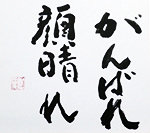 がんばれ
顔晴れ